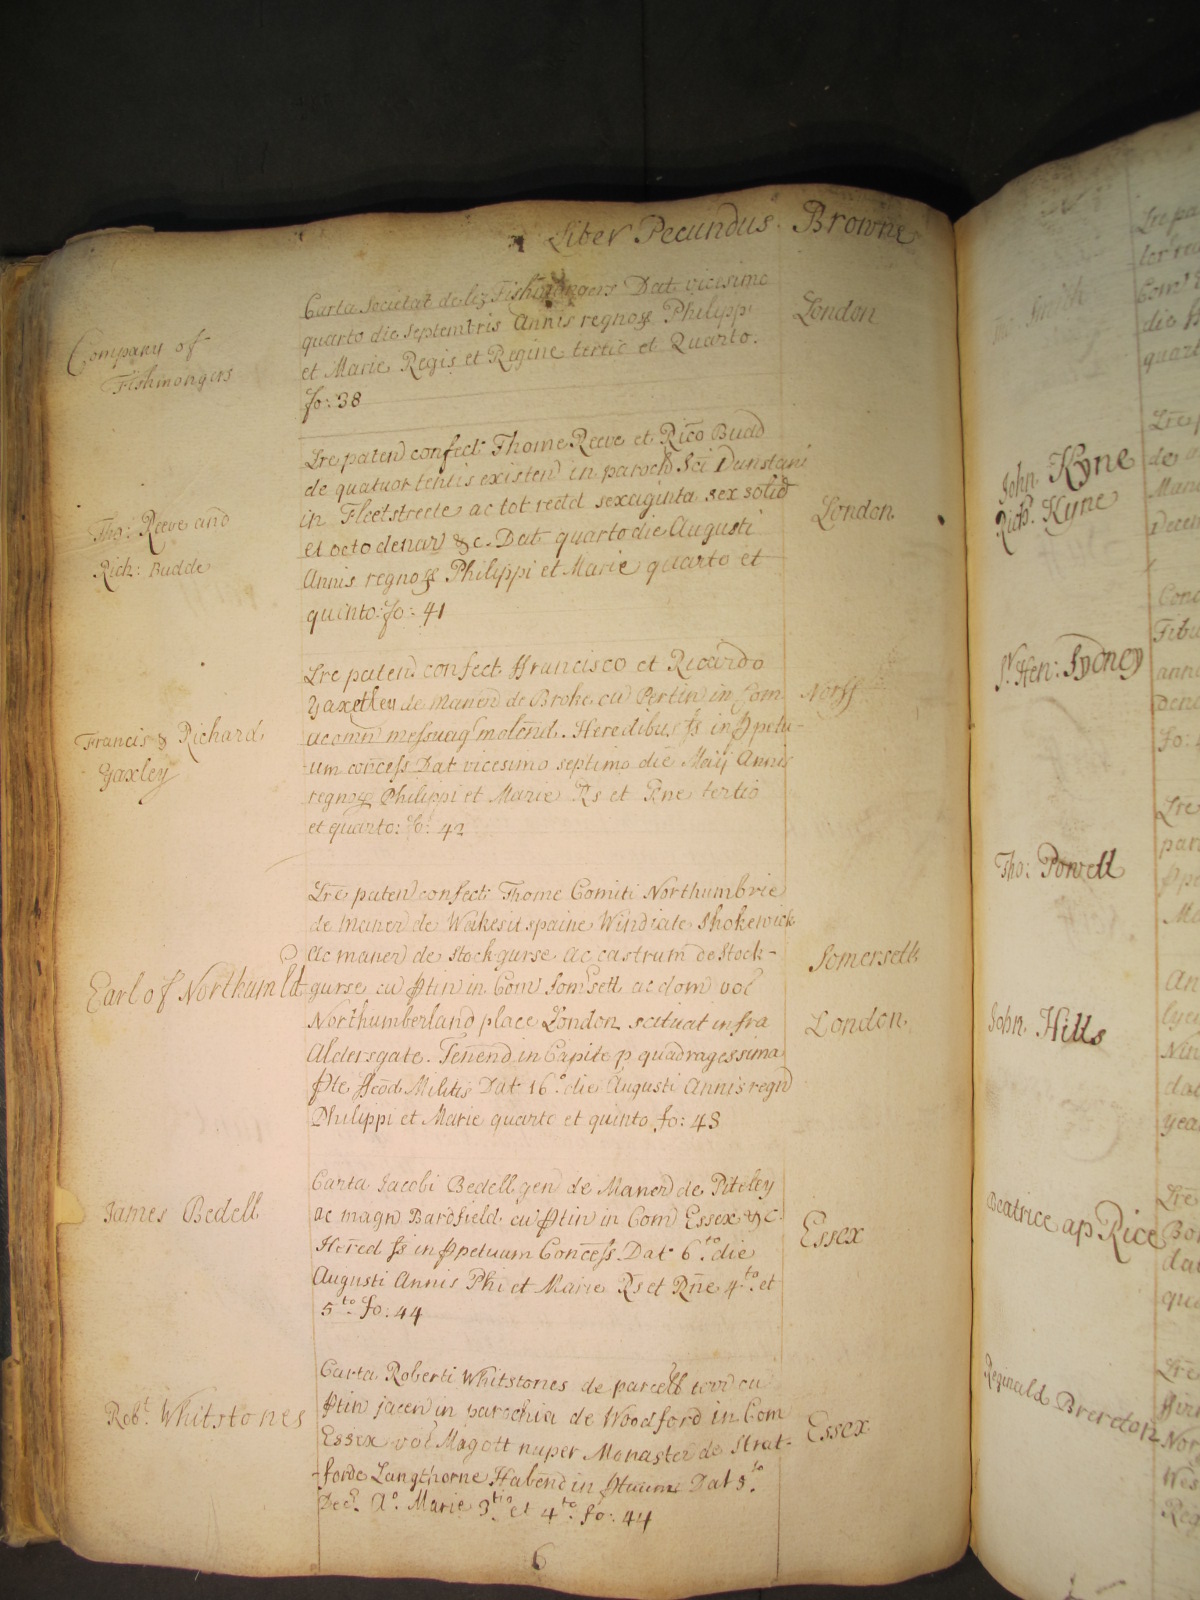 Liber Secundus Browne
Company of
Fishmongers
Carta Societat de lez Fishmongers Dat vicesimo
quarto die Septembris Annis regnoꝝ Philippi
et Marie Regis et Regine tertio et Quarto.
fo: 38
London
Tho: Reeve and
Rich: Budde
Lre paten confect Thome Reeve et Rico Budd
de quatuor tentis existen in paroch Sci Dunstani
in Fleetstreete ac tot redd sexaginta sex solid
et octo denar &c. Dat quarto die Augusti
Annis regnoꝝ Philippi et Marie quarto et
quinto: fo: 41
London
Francis & Richard
Yaxley
Lre paten confect ffrancisco et Ricardo
Yaxelley de Maner de Broke cu Pertin in Com
ac omn messuag molend. Heredibus ss in ppetu-
um concess Dat vicesimo septimo die Maij Annis
regnoꝝ Philippi et Marie Rs et Rne tertio
et quarto: fo: 42
Norff
Earl of Northumld
Lre paten confect Thome Comiti Northumbrie
de Maner de Wakesit spaine Windiate Shokewick
Ac maner de Stockgurse ac castrum de Stock-
gurse cu ptin in Com Somsett ac dom voc
Northumberland place London scituat infra
Aldersgate. Tenend in Capite p quadragessima
pte ffeod Militis Dat 16.º die Augusti Annis regn
Philippi et Marie quarto et quinto fo: 43
Somersett
London
James Bedell
Carta Jacobi Bedell gen de Maner de Pitcley
ac magn Bardfield cu ptin in Com Essex &c.
Hered ss in ppetuum Concess Dat 6.to die
Augusti Annis Phi et Marie Rs et Rne 4.to et
5to fo: 44
Essex
Robt. Whitstones
Carta Roberti Whitstones de parcell terr cu
ptin jacen in parochia de Woodford in Com
Essex voc Magott nuper Monaster de Strat-
-forde Langthorne Habend in Dat 5.to
Dec. Aº Marie 3tio et 4to fo: 44
Essex
6
John Kyne
Rich. Kyne
Sr. Hen: Sydney
Tho: Powell
John Hills
Beatrice ap Rice
Reginald Brereton